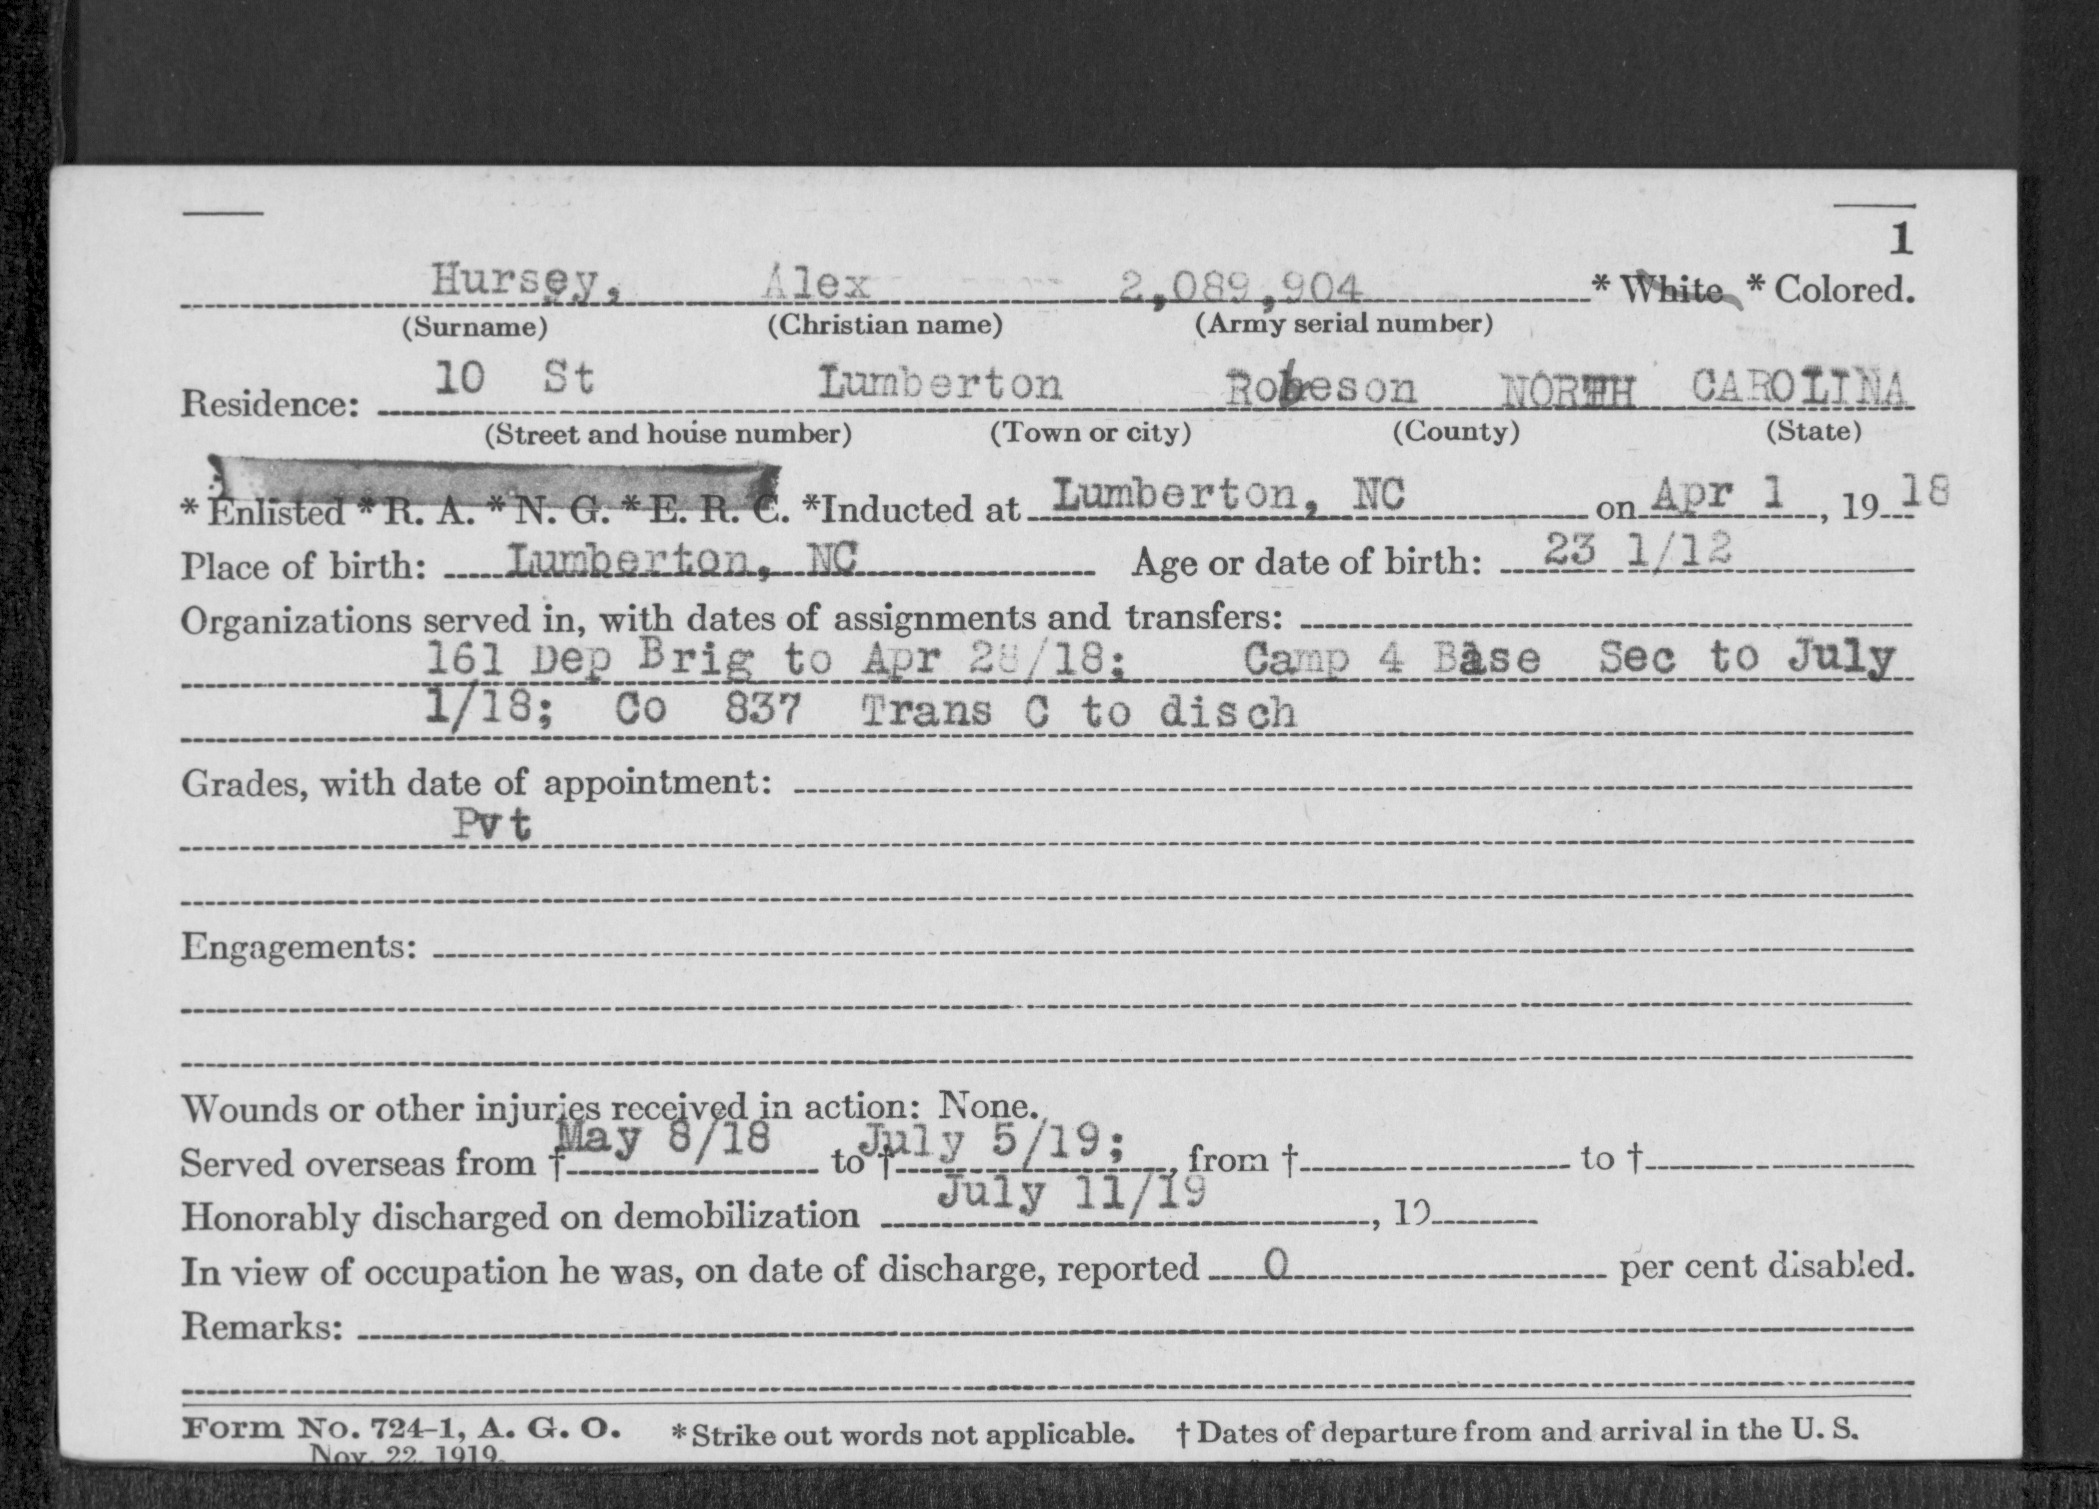 1
Hursey, Alex 2,089,904 * White * Colored.
(Surname) (Christian name) (Army serial number)
Residence: 10 St Lumberton Robeson NORTH CAROLINA
(Street and house number) (Town or city) (County) (State)
* Enlisted * R. A. * N. G. * E. R. C. *Inducted at Lumberton, NC on Apr 1, 19 18
Place of birth: Lumberton, NC Age or date of birth: 23 1/12
Organizations served in, with dates of assignments and transfers:
161 Dep Brig to Apr 28/18; Camp 4 Base Sec to July
1/18; Co 837 Trans C to disch
Grades, with date of appointment:
Pvt
Engagements:
Wounds or other injuries received in action: None.
Served overseas from † May 8/18 to † July 5/19; , from † to †
Honorably discharged on demobilization July 11/19, 19
In view of occupation he was, on date of discharge, reported 0 per cent disabled.
Remarks:
Form No. 724-1, A. G. O. * Strike out words not applicable. † Dates of departure from and arrival in the U. S.
Nov. 22, 1919.